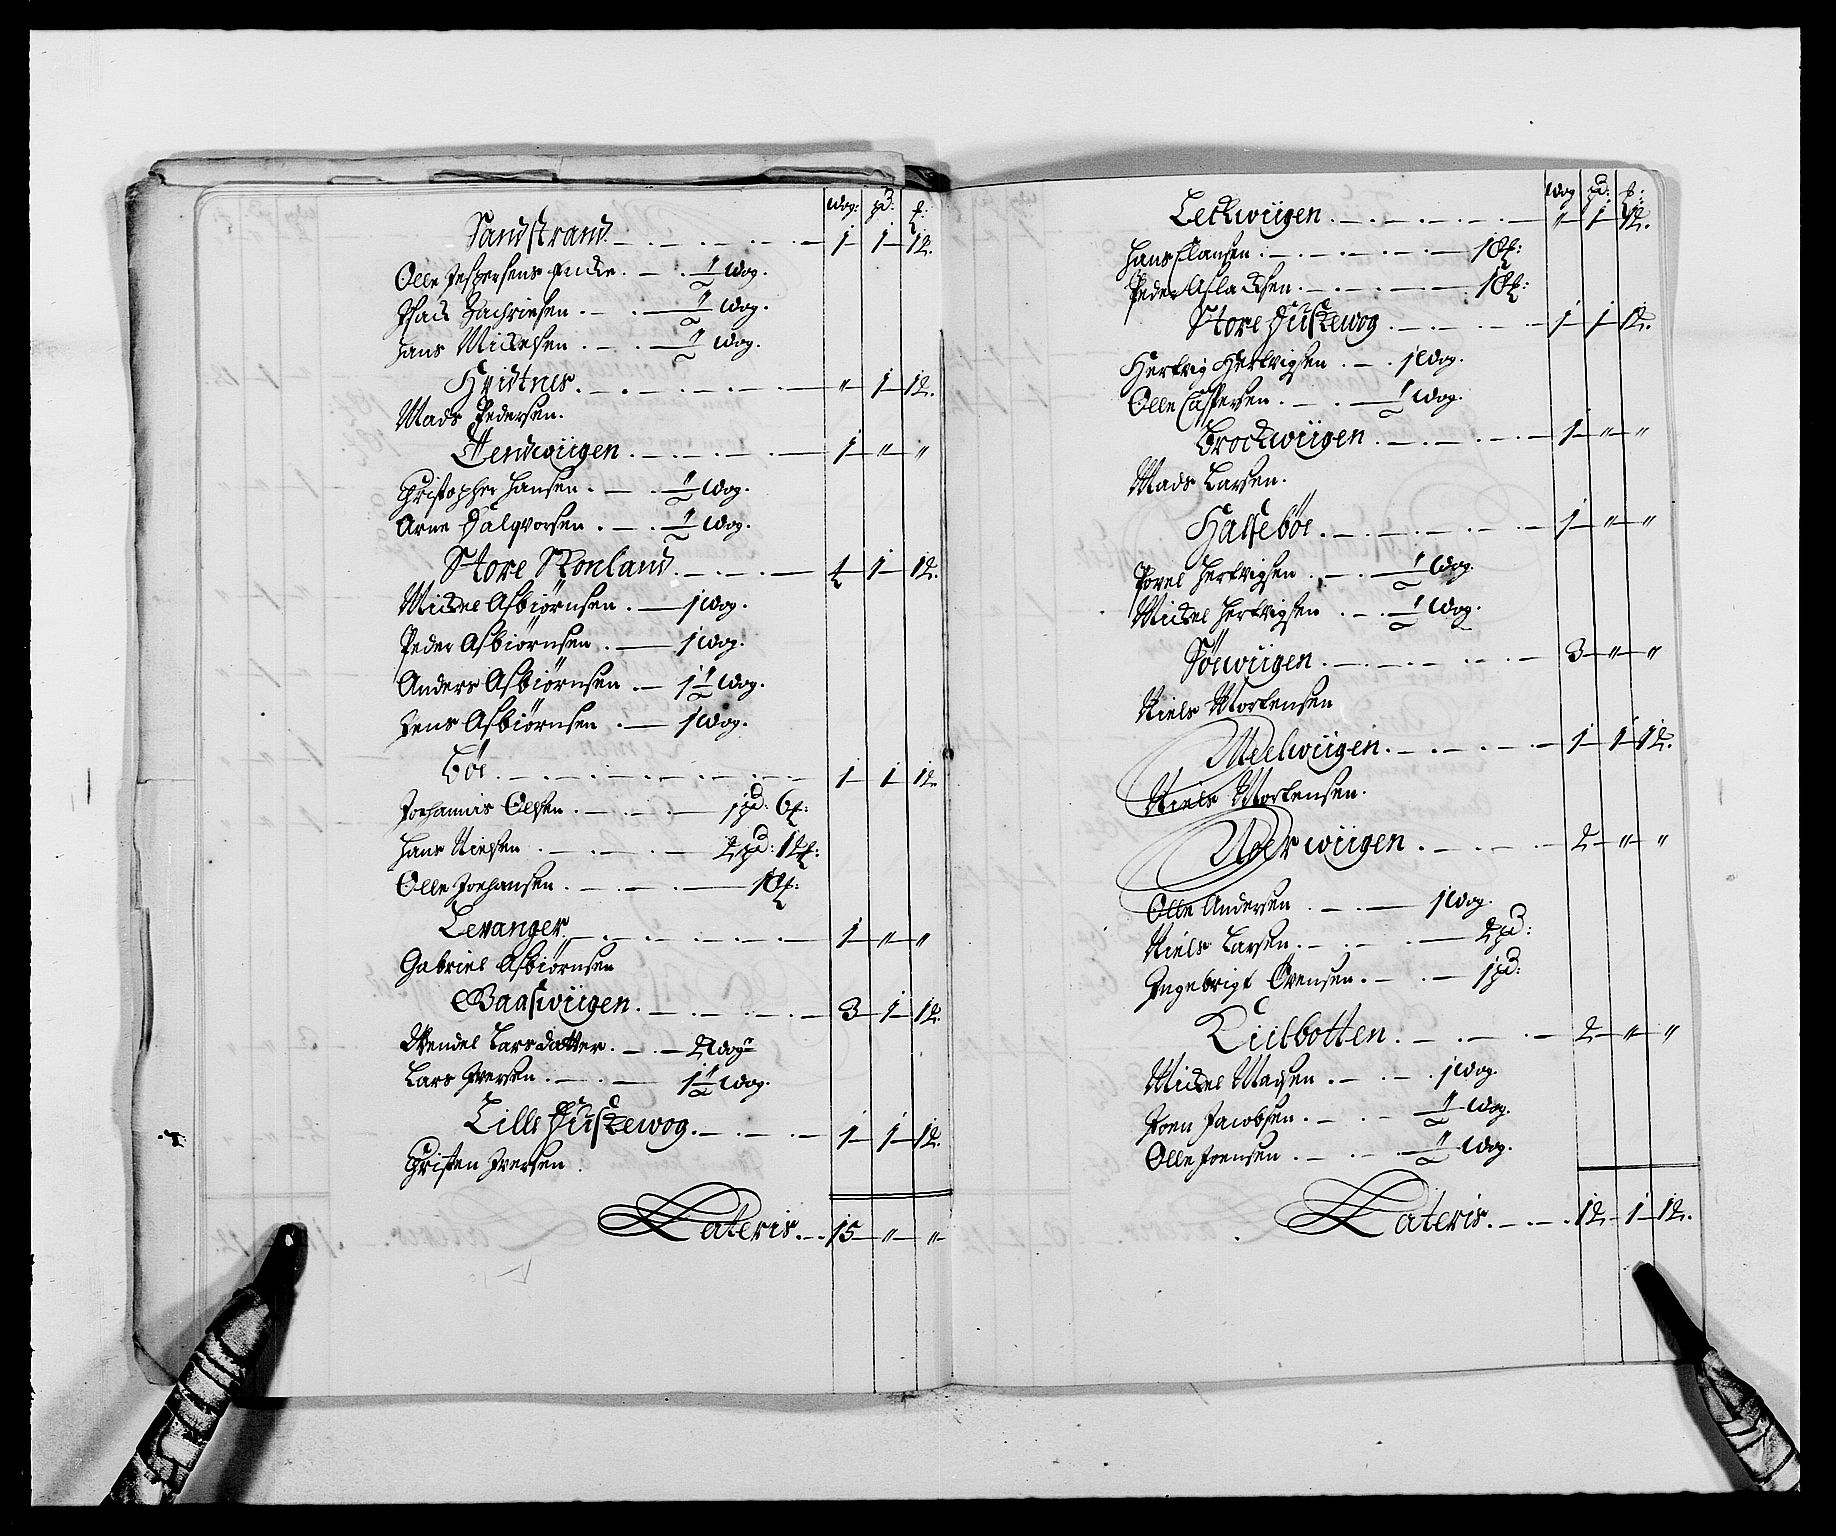 Wog: pd: £:
Sandstrand 1 1 12.
Olle Jespersens Encke. ½ Wog.
Isack Zachriesen ½ Wog.
Hans Mickelsen ½ Wog.
Hvidtnes. " 1 12.
Mads Pedersen.
Tendwiigen 1 " "
Christopher Hansen ½ Wog.
Arne Halqvorsen ½ Wog.
Store Skonland 4 1 12.
Mickel Asbiørnsen 1 Wog.
Peder Asbiørnsen 1 Wog.
Anders Asbiørnsen 1½ Wog.
Jens Asbiørnsen 1 Wog.
Bøe 1 1 12
Johannis Olsen 1 pd: 6 £:
Hans Nielsen 2 pd: 12 £:
Olle Joehansen 18 £:
Levanger 1 " "
Gabriel Asbiørnsen
Gaaswiigen 3 1 12.
Wendel Larsdatter 2 Wog
Lars Iversen 1½ Wog.
Lille Hustewog 1 1 12.
Christen Iversen
Lateris 15 " "
Wog pd: £:
Leckwiigen " 1 12.
Hans Clausen 18 £:
Peder Aslacksen 18 £:
Store Hustewog 1 1 12.
Hertvig Hertvigsen 1 Wog.
Olle Caspersen ½ Wog.
Brockwiigen 1 " "
Mads Larsen.
Halsebøe 1 " "
Povel Hertvigsen ½ Wog.
Mickel Hertvigsen ½ Wog.
Søewiigen 3 " "
Niels Mortensen
Meelwiigen 1 1 12.
Niels Mortensen.
wiigen 2 " "
Olle Andersen 1 Wog.
Niels Larsen 2 pd:
Ingebrigt Evensen 1 pd:
Liilbotten 2 " "
Mickel Madsen 1 Wog.
Joen Jacobsen ½ Wog.
Olle Joensen ½ Wog.
Lateris 12 1 12.